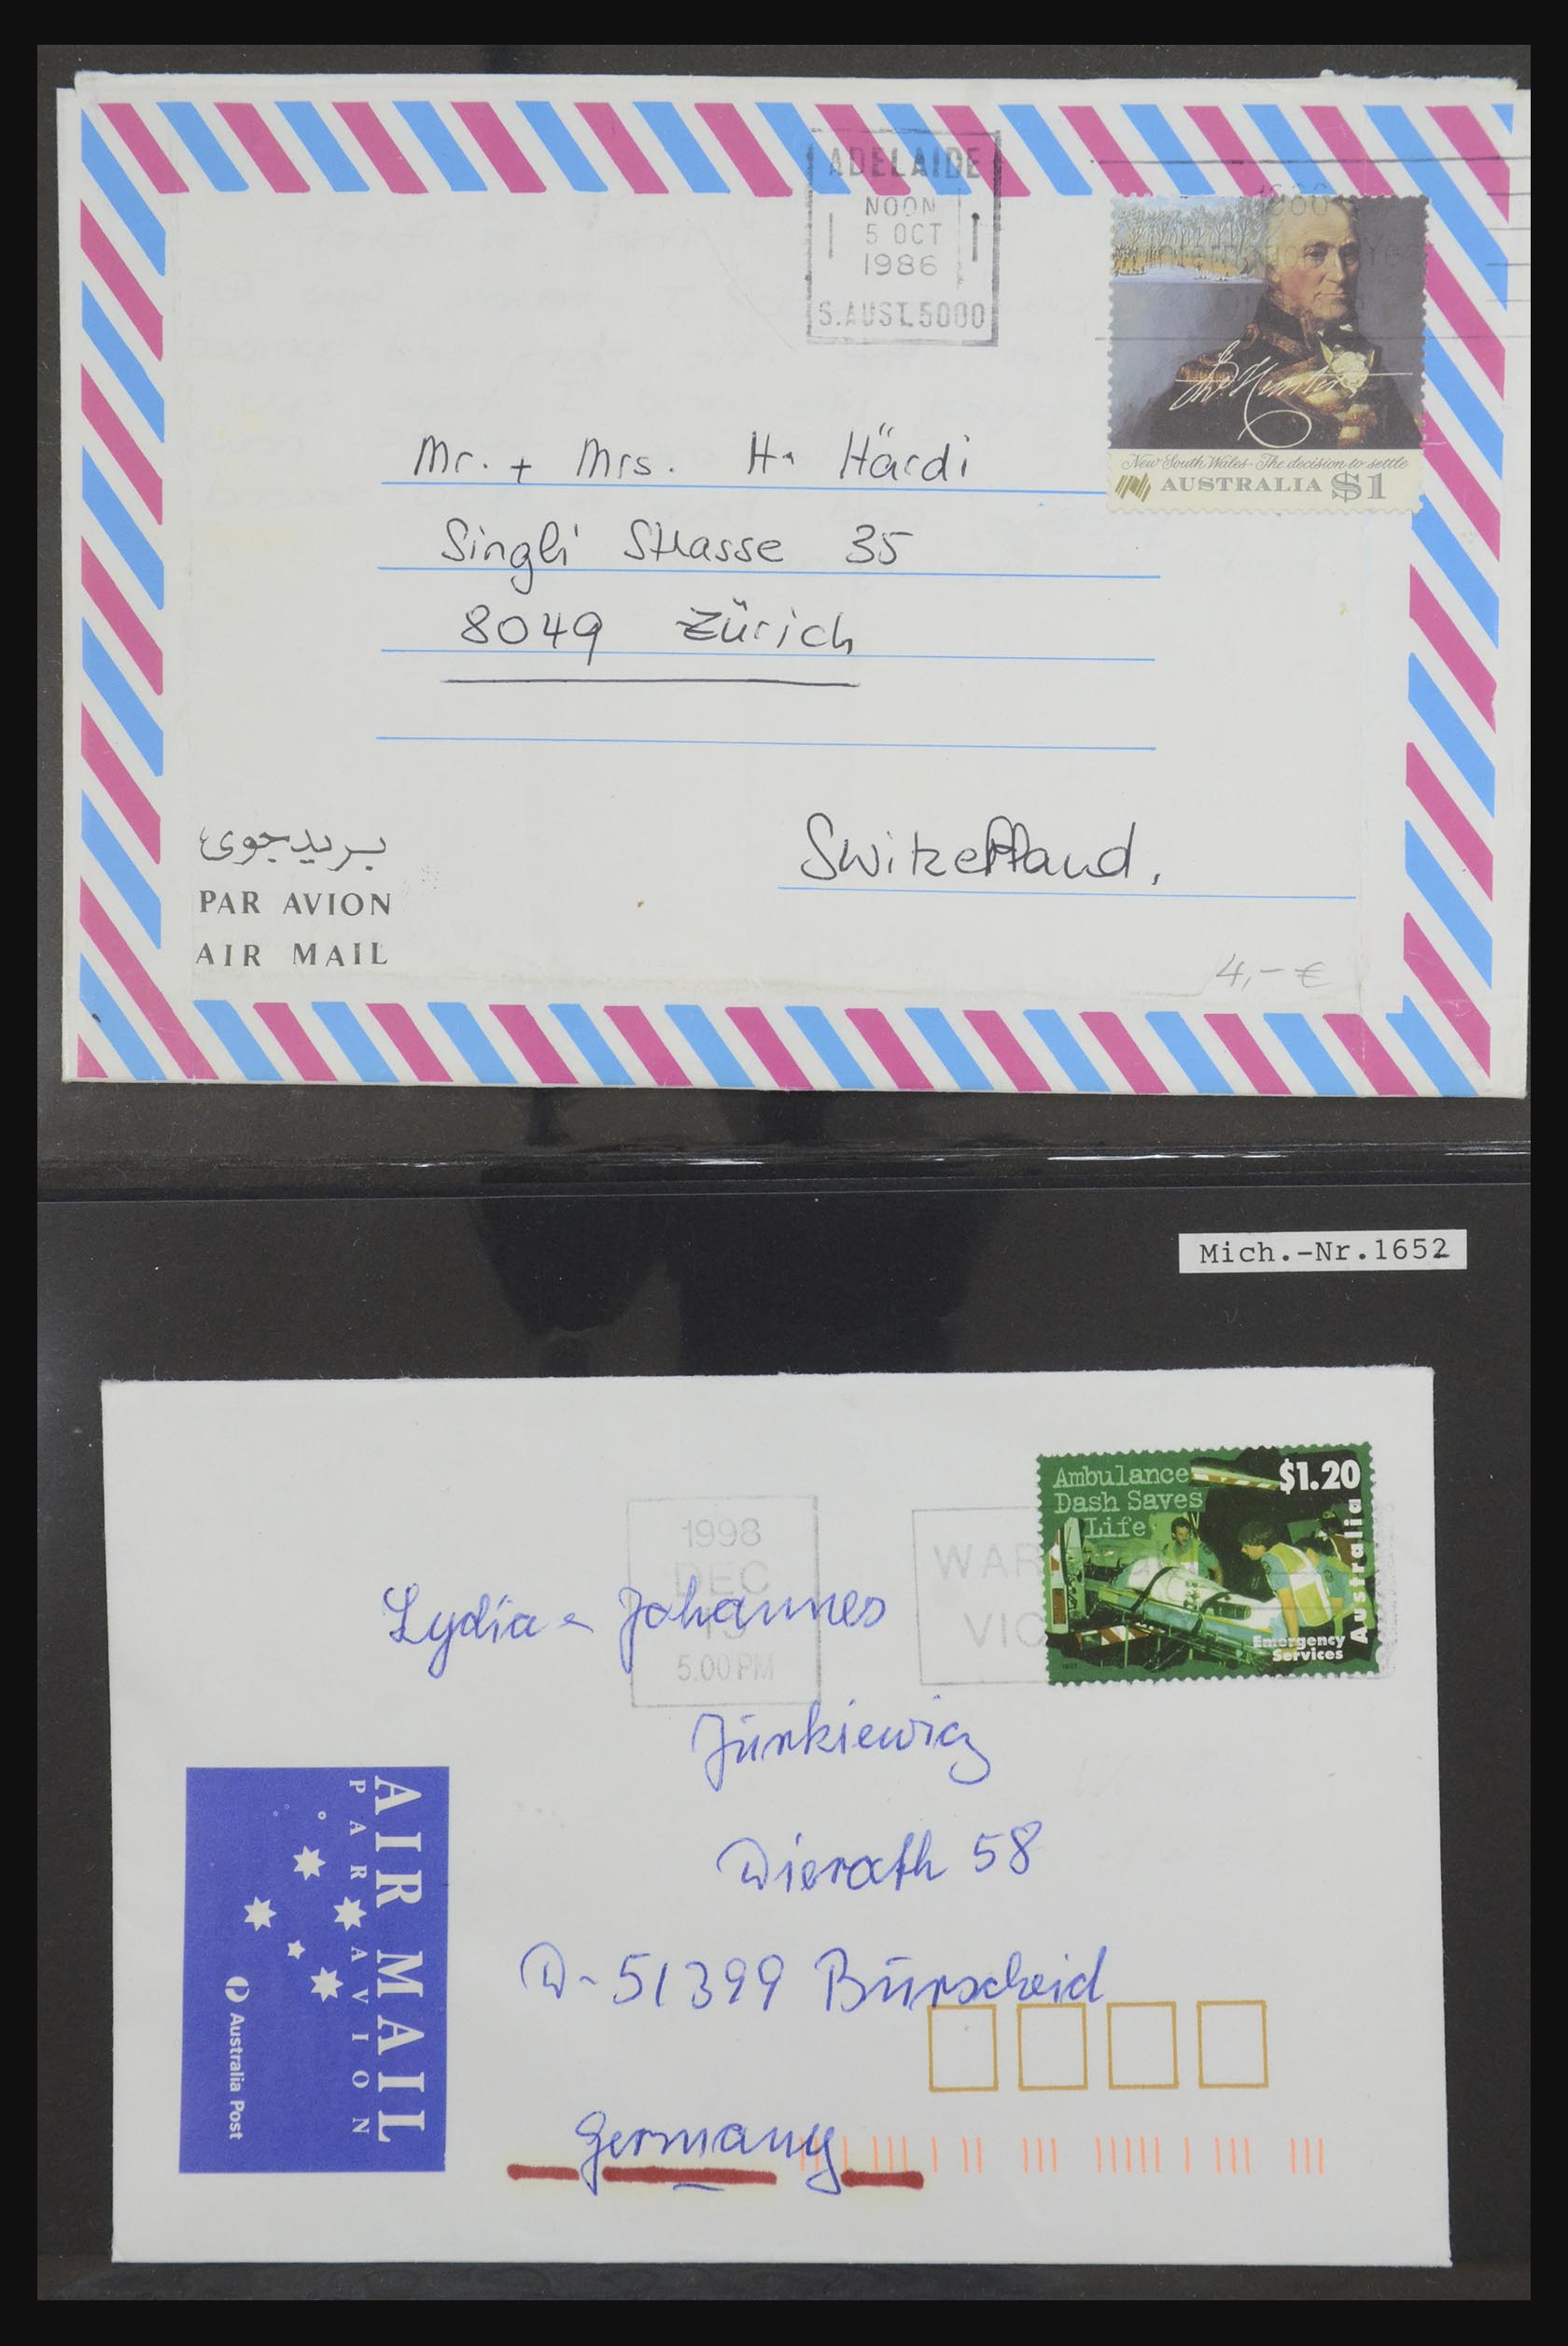 ADELAIDE
NOON
5 OCT
1986
S.AUST.5000
1986
International Ye
Jno Hunter
New South Wales - The decision to settle
AUSTRALIA $1
Mr. + Mrs. H. Härdi
Singli Strasse 35
8049 Zürich
Switzerland.
بريد جوى
PAR AVION
AIR MAIL
4,- €
Mich.-Nr.1652
Ambulance
Dash Saves
Life
$1.20
Australia
Emergency
Services
1998
DEC
15
5.00PM
WAR
VIC
Lydia & Johannes
Jünkiewicz
Dierath 58
D-51399 Bürscheid
Germany
AIR MAIL
PAR AVION
Australia Post